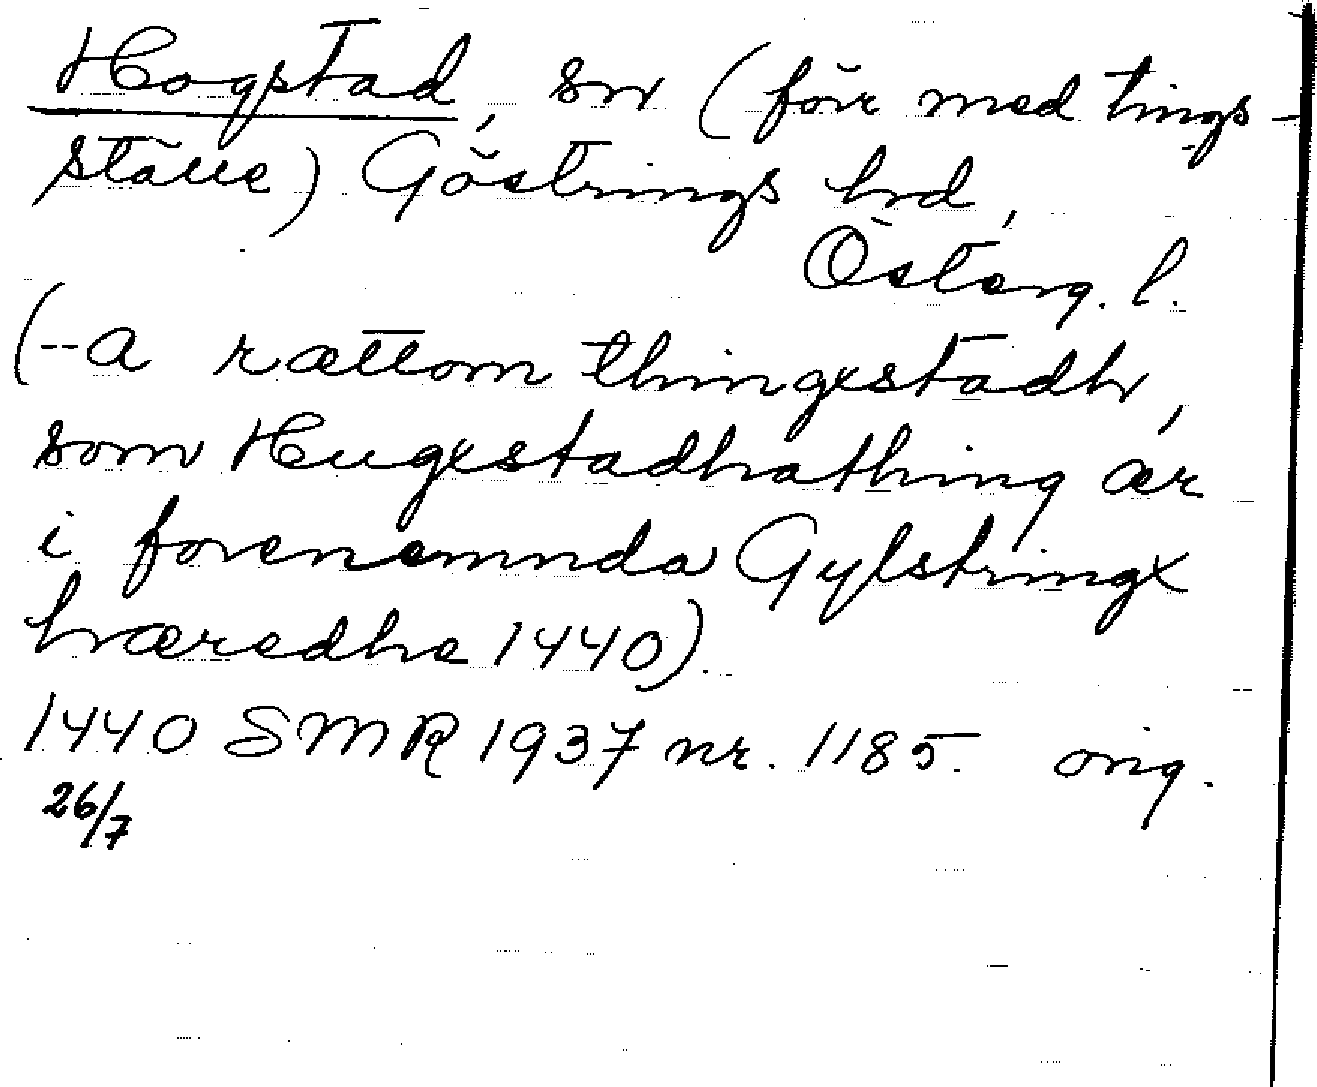 Hogstad, sn (förr med tings-
ställe) Göstrings hd,
Österg. l.
(--a rættom thingestadh,
som Hugestadhathing ær
i forenemnda Gylstringx
hæredhe 1440).
1440 SMR 1937 nr. 1185. orig.
26/7